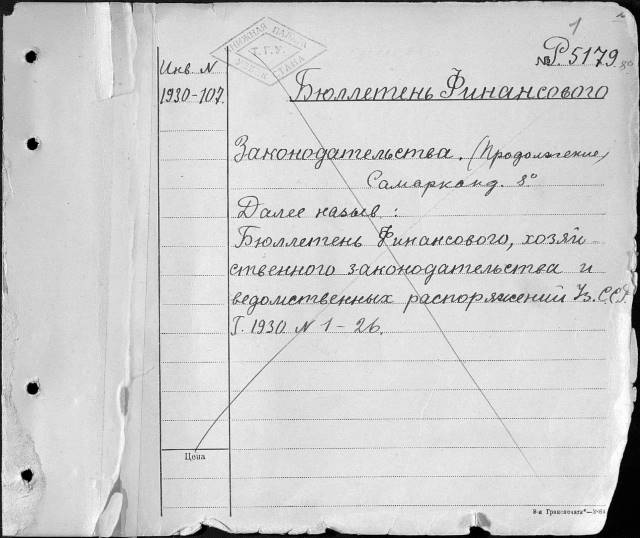 1
КНИЖНАЯ ПАЛАТА
Т.Г.У.
УЗБЕКИСТАНА
№ Р.5179 8°
Инв. N
1930-107.
Бюллетень Финансового
Законодательства. (Продолжение)
Самарканд. 8°
Далее назыв:
Бюллетень Финансового, хозяй
ственного законодательства и
ведомственных распоряжений Уз.С.С.Р.
Г. 1930 N 1-26.
Цена